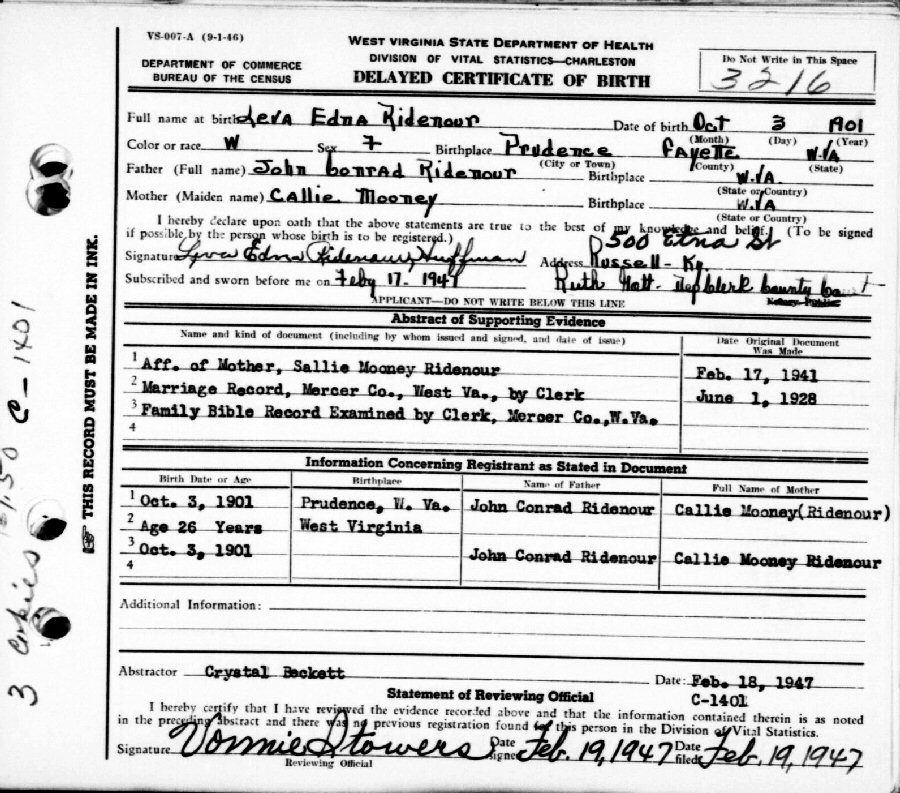 VS-007-A (9-1-46)
WEST VIRGINIA STATE DEPARTMENT OF HEALTH
DEPARTMENT OF COMMERCE
BUREAU OF THE CENSUS
DIVISION OF VITAL STATISTICS—CHARLESTON
DELAYED CERTIFICATE OF BIRTH
Do Not Write in This Space
3216
Full name at birth Leva Edna Ridenour Date of birth Oct 3 1901
(Month) (Day) (Year)
Color or race W Sex F Birthplace Prudence Fayette W.VA
(City or Town) (County) (State)
Father (Full name) John Conrad Ridenour Birthplace W.VA
(State or Country)
Mother (Maiden name) Callie Mooney Birthplace W.VA
(State or Country)
I hereby declare upon oath that the above statements are true to the best of my knowledge and belief. (To be signed
if possible by the person whose birth is to be registered.)
Signature Leva Edna Ridenour Huffman Address 500 Etna St
Russell - Ky.
Subscribed and sworn before me on Feby 17. 1947 Ruth Hatt - Dep Clerk County Court
Notary Public
APPLICANT—DO NOT WRITE BELOW THIS LINE
Abstract of Supporting Evidence
Name and kind of document (including by whom issued and signed, and date of issue) Date Original Document
Was Made
1 Aff. of Mother, Sallie Mooney Ridenour Feb. 17, 1941
2 Marriage Record, Mercer Co., West Va., by Clerk June 1, 1928
3 Family Bible Record Examined by Clerk, Mercer Co.,W.Va.
4
Information Concerning Registrant as Stated in Document
Birth Date or Age Birthplace Name of Father Full Name of Mother
1 Oct. 3, 1901 Prudence, W. Va. John Conrad Ridenour Callie Mooney(Ridenour)
2 Age 26 Years West Virginia
3 Oct. 3, 1901 John Conrad Ridenour Callie Mooney Ridenour
4
Additional Information:
Abstractor Crystal Beckett Date: Feb. 18, 1947
C-1401
Statement of Reviewing Official
I hereby certify that I have reviewed the evidence recorded above and that the information contained therein is as noted
in the preceding abstract and there was no previous registration found for this person in the Division of Vital Statistics.
Signature Vonnie Stowers Date signed Feb. 19, 1947 Date filed Feb. 19, 1947
Reviewing Official
THIS RECORD MUST BE MADE IN INK.
3 copies C-1401